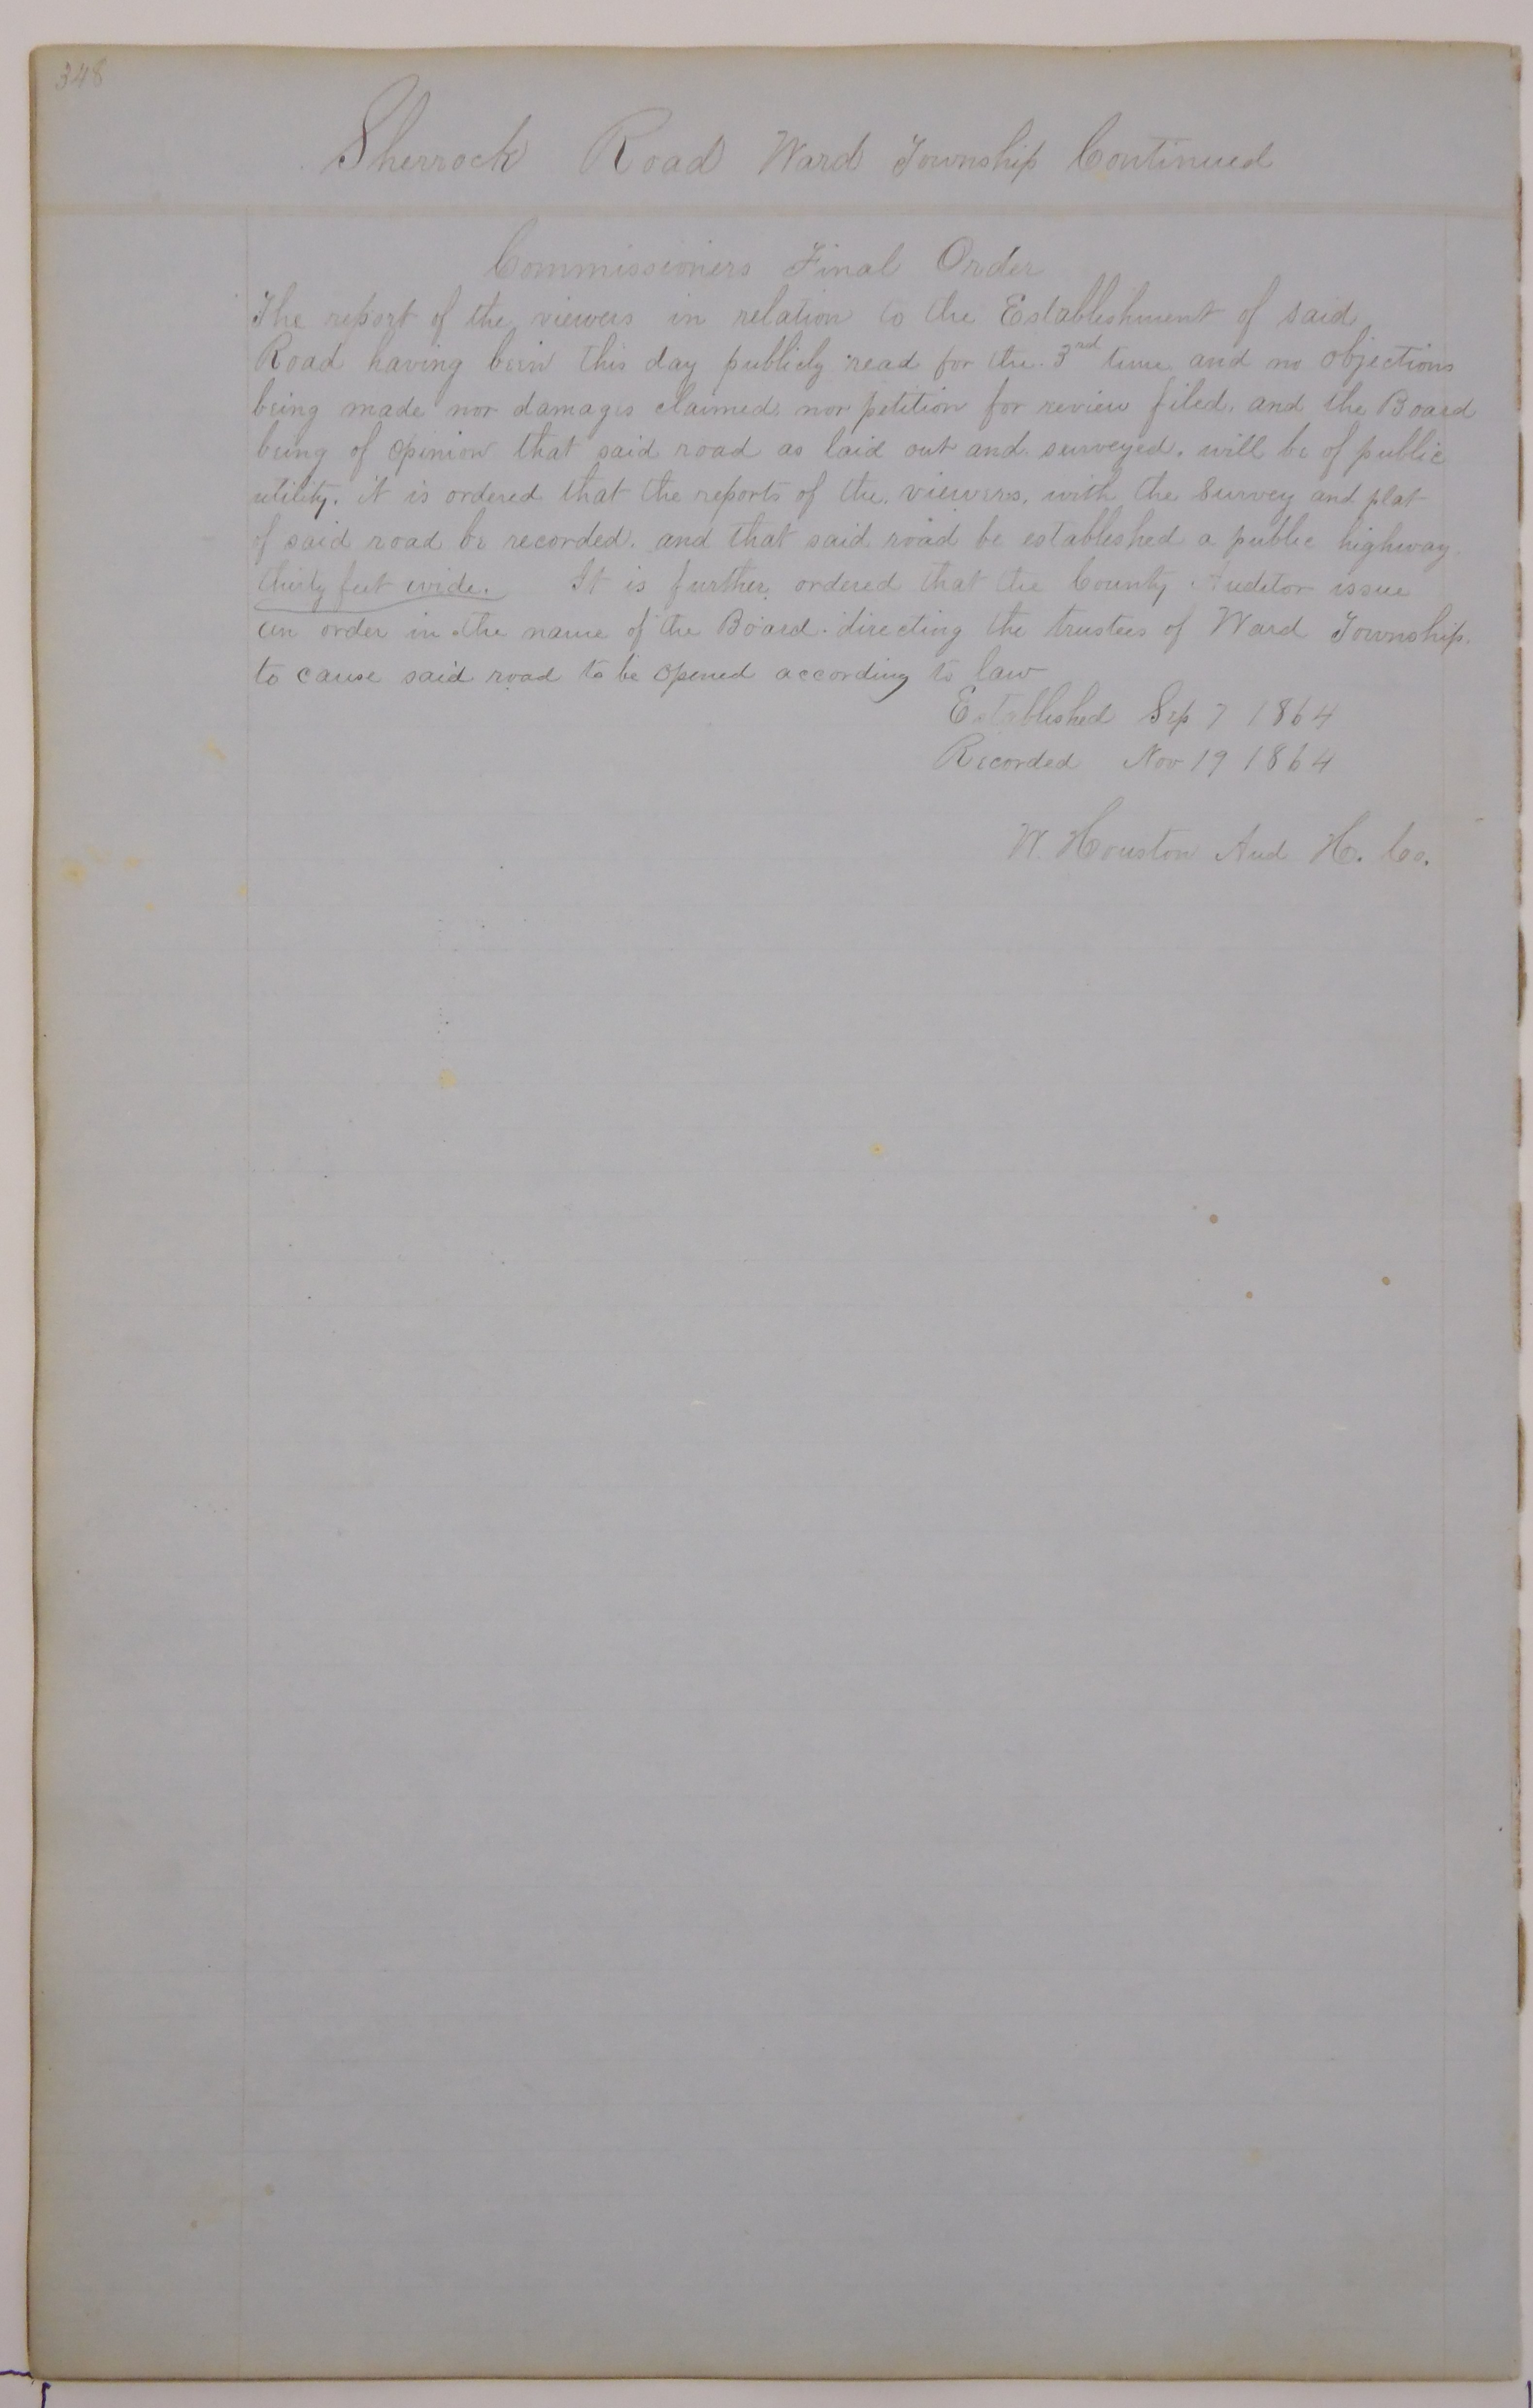 348
Sherrock Road Ward Township Continued
Commissioners Final Order
The report of the viewers in relation to the Establishment of said
Road having been this day publicly read for the 3rd time and no objections
being made nor damages claimed nor petition for review filed, and the Board
being of opinion that said road as laid out and surveyed, will be of public
utility, it is ordered that the reports of the viewers, with the Survey and plat
of said road be recorded, and that said road be established a public highway
thirty feet wide. It is further ordered that the County Auditor issue
an order in the name of the Board directing the trustees of Ward Township
to cause said road to be opened according to law
Established Sep 7 1864
Recorded Nov 19 1864
W. Houston Aud H. Co.